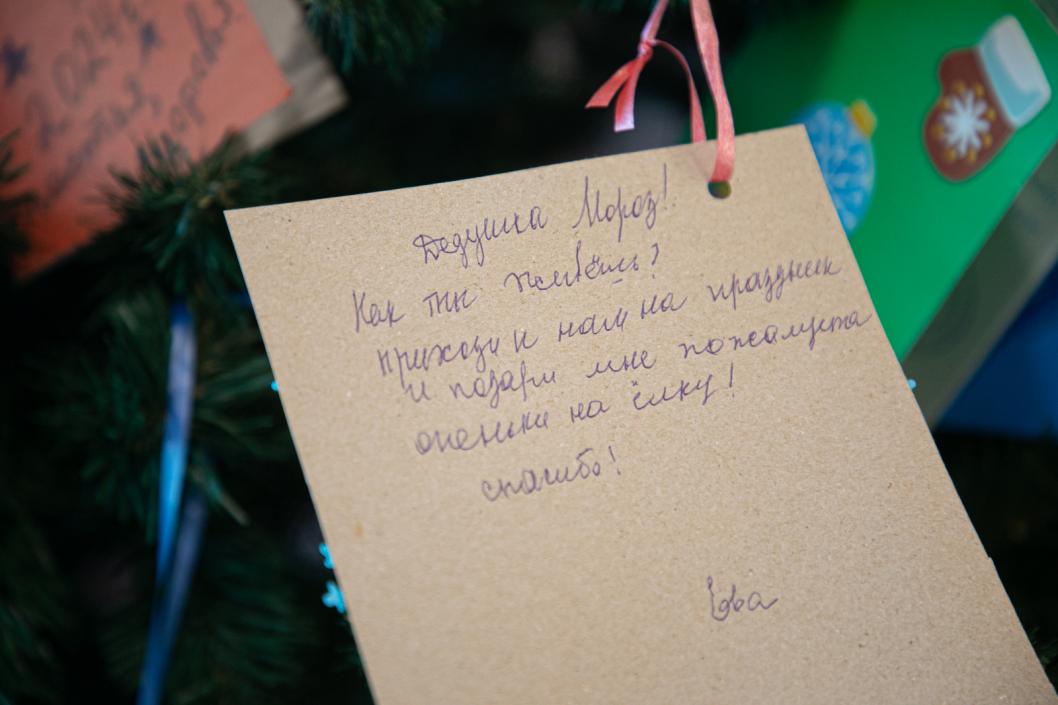 2024г
Дедушка Мороз!
Как ты живёшь?
приходи к нам на праздник
и подари мне пожалуйста
огоньки на ёлку!
спасибо!
Ева